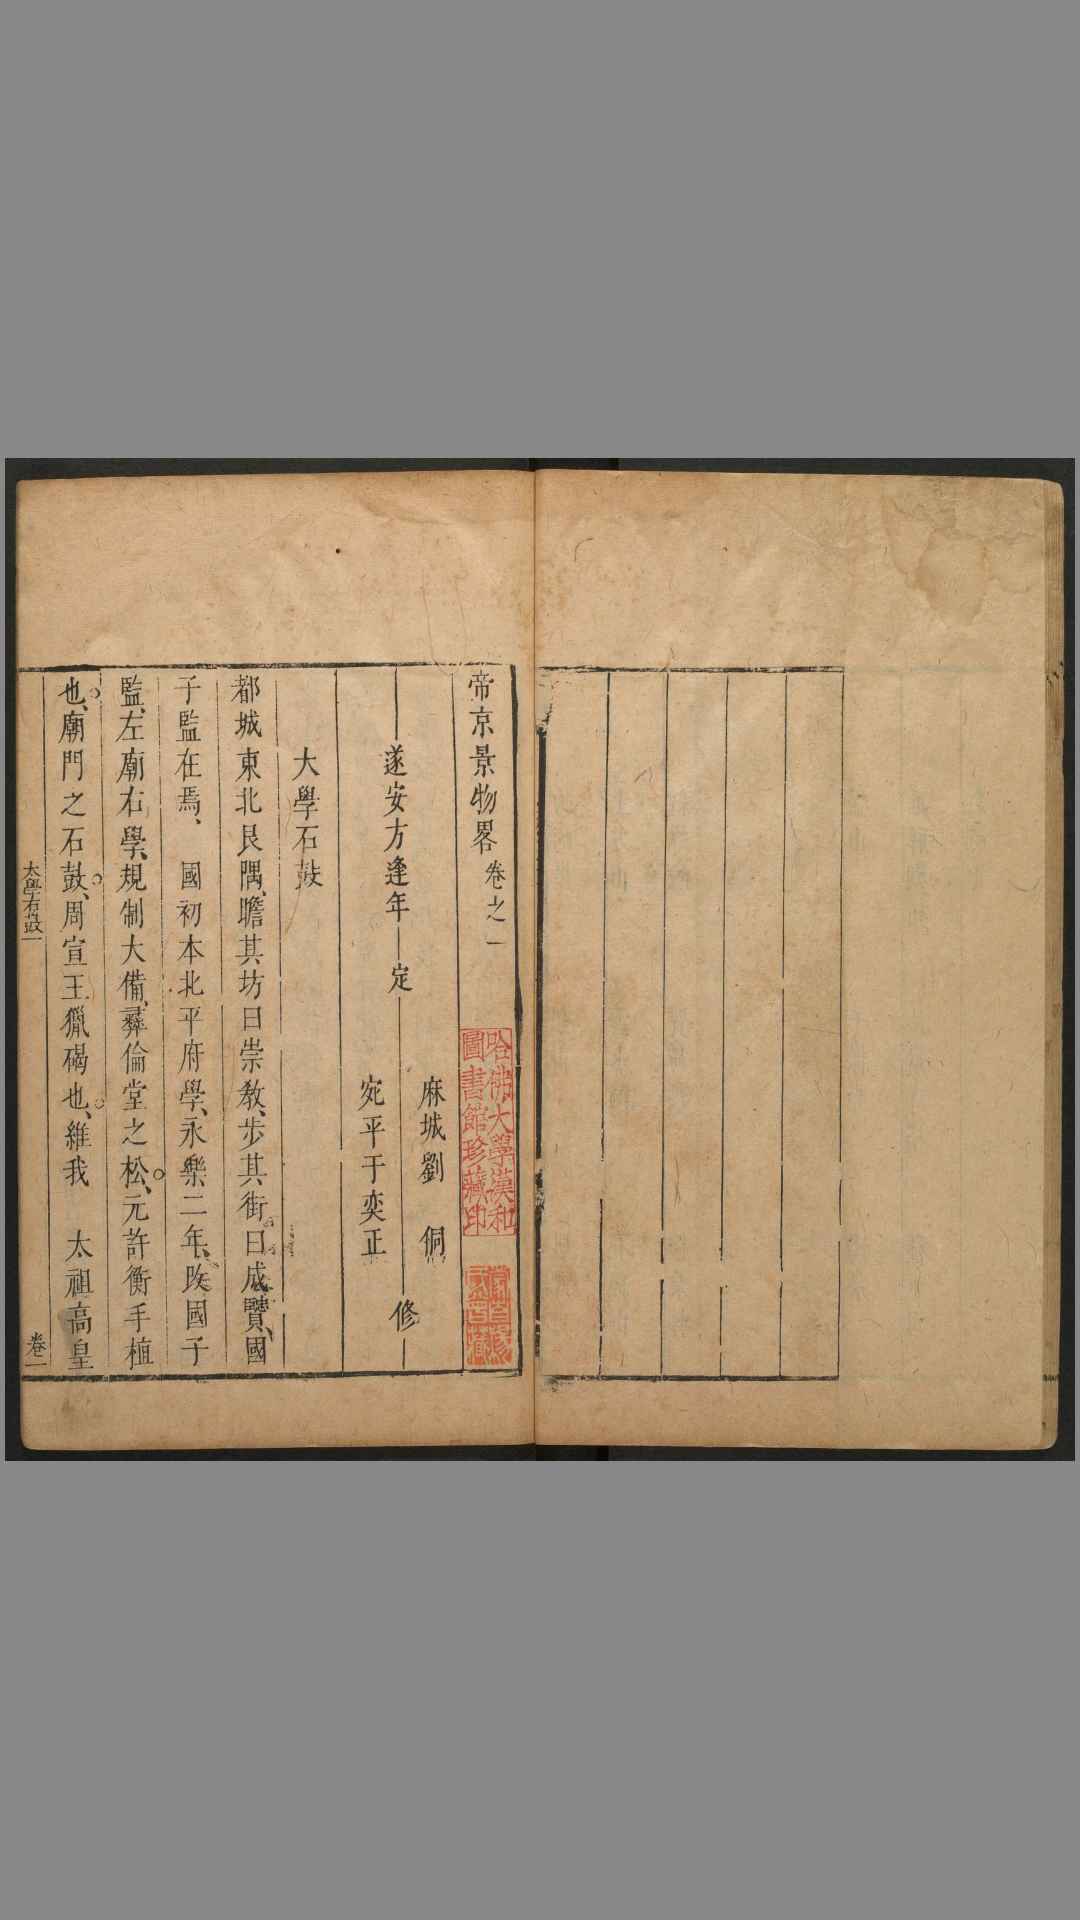 帝京景物畧卷之一
遂安方逢年定
麻城劉侗
宛平于奕正
修
大學石鼓
都城東北艮隅、瞻其坊曰崇教、步其街曰成賢、國
子監在焉、國初本北平府學、永樂二年、改國子
監、左廟右學、規制大備、彞倫堂之松、元許衡手植
也、廟門之石鼓、周宣王獵碣也、維我太祖高皇
太學石鼓一
卷一
哈佛大學漢和
圖書館珍藏印